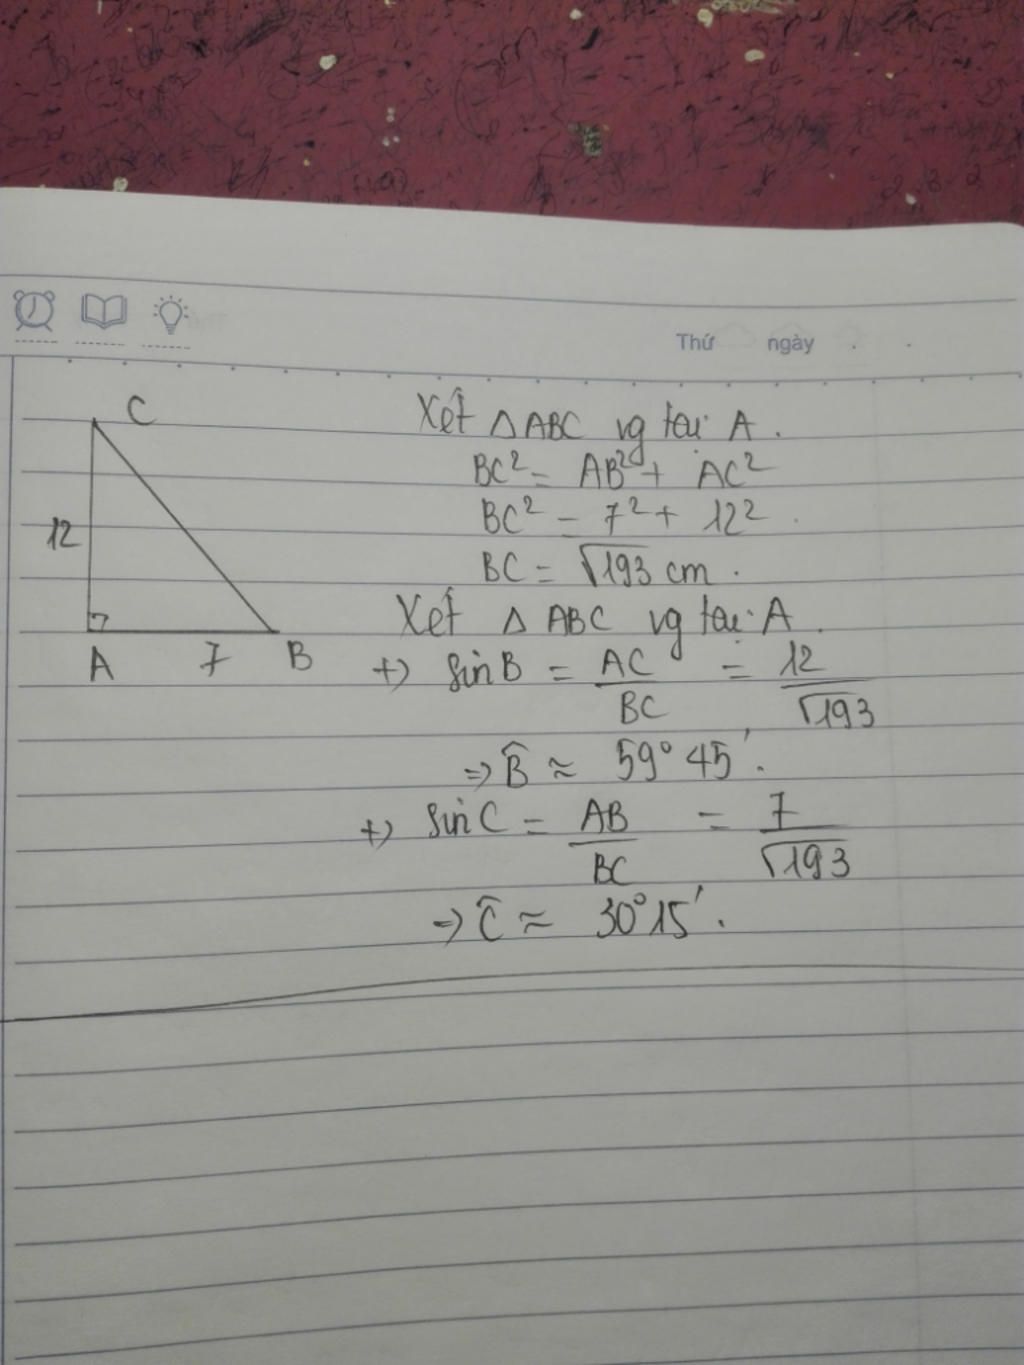 Thứ ngày
C
Xét △ABC vg tại A.
BC² = AB² + AC²
12
BC² = 7² + 12²
BC = √193 cm.
Xét △ ABC vg tại A.
A 7 B
+) sin B = AC/BC = 12/√193
=> B̂ ≈ 59°45'.
+) sin C = AB/BC = 7/√193
=> Ĉ ≈ 30°15'.